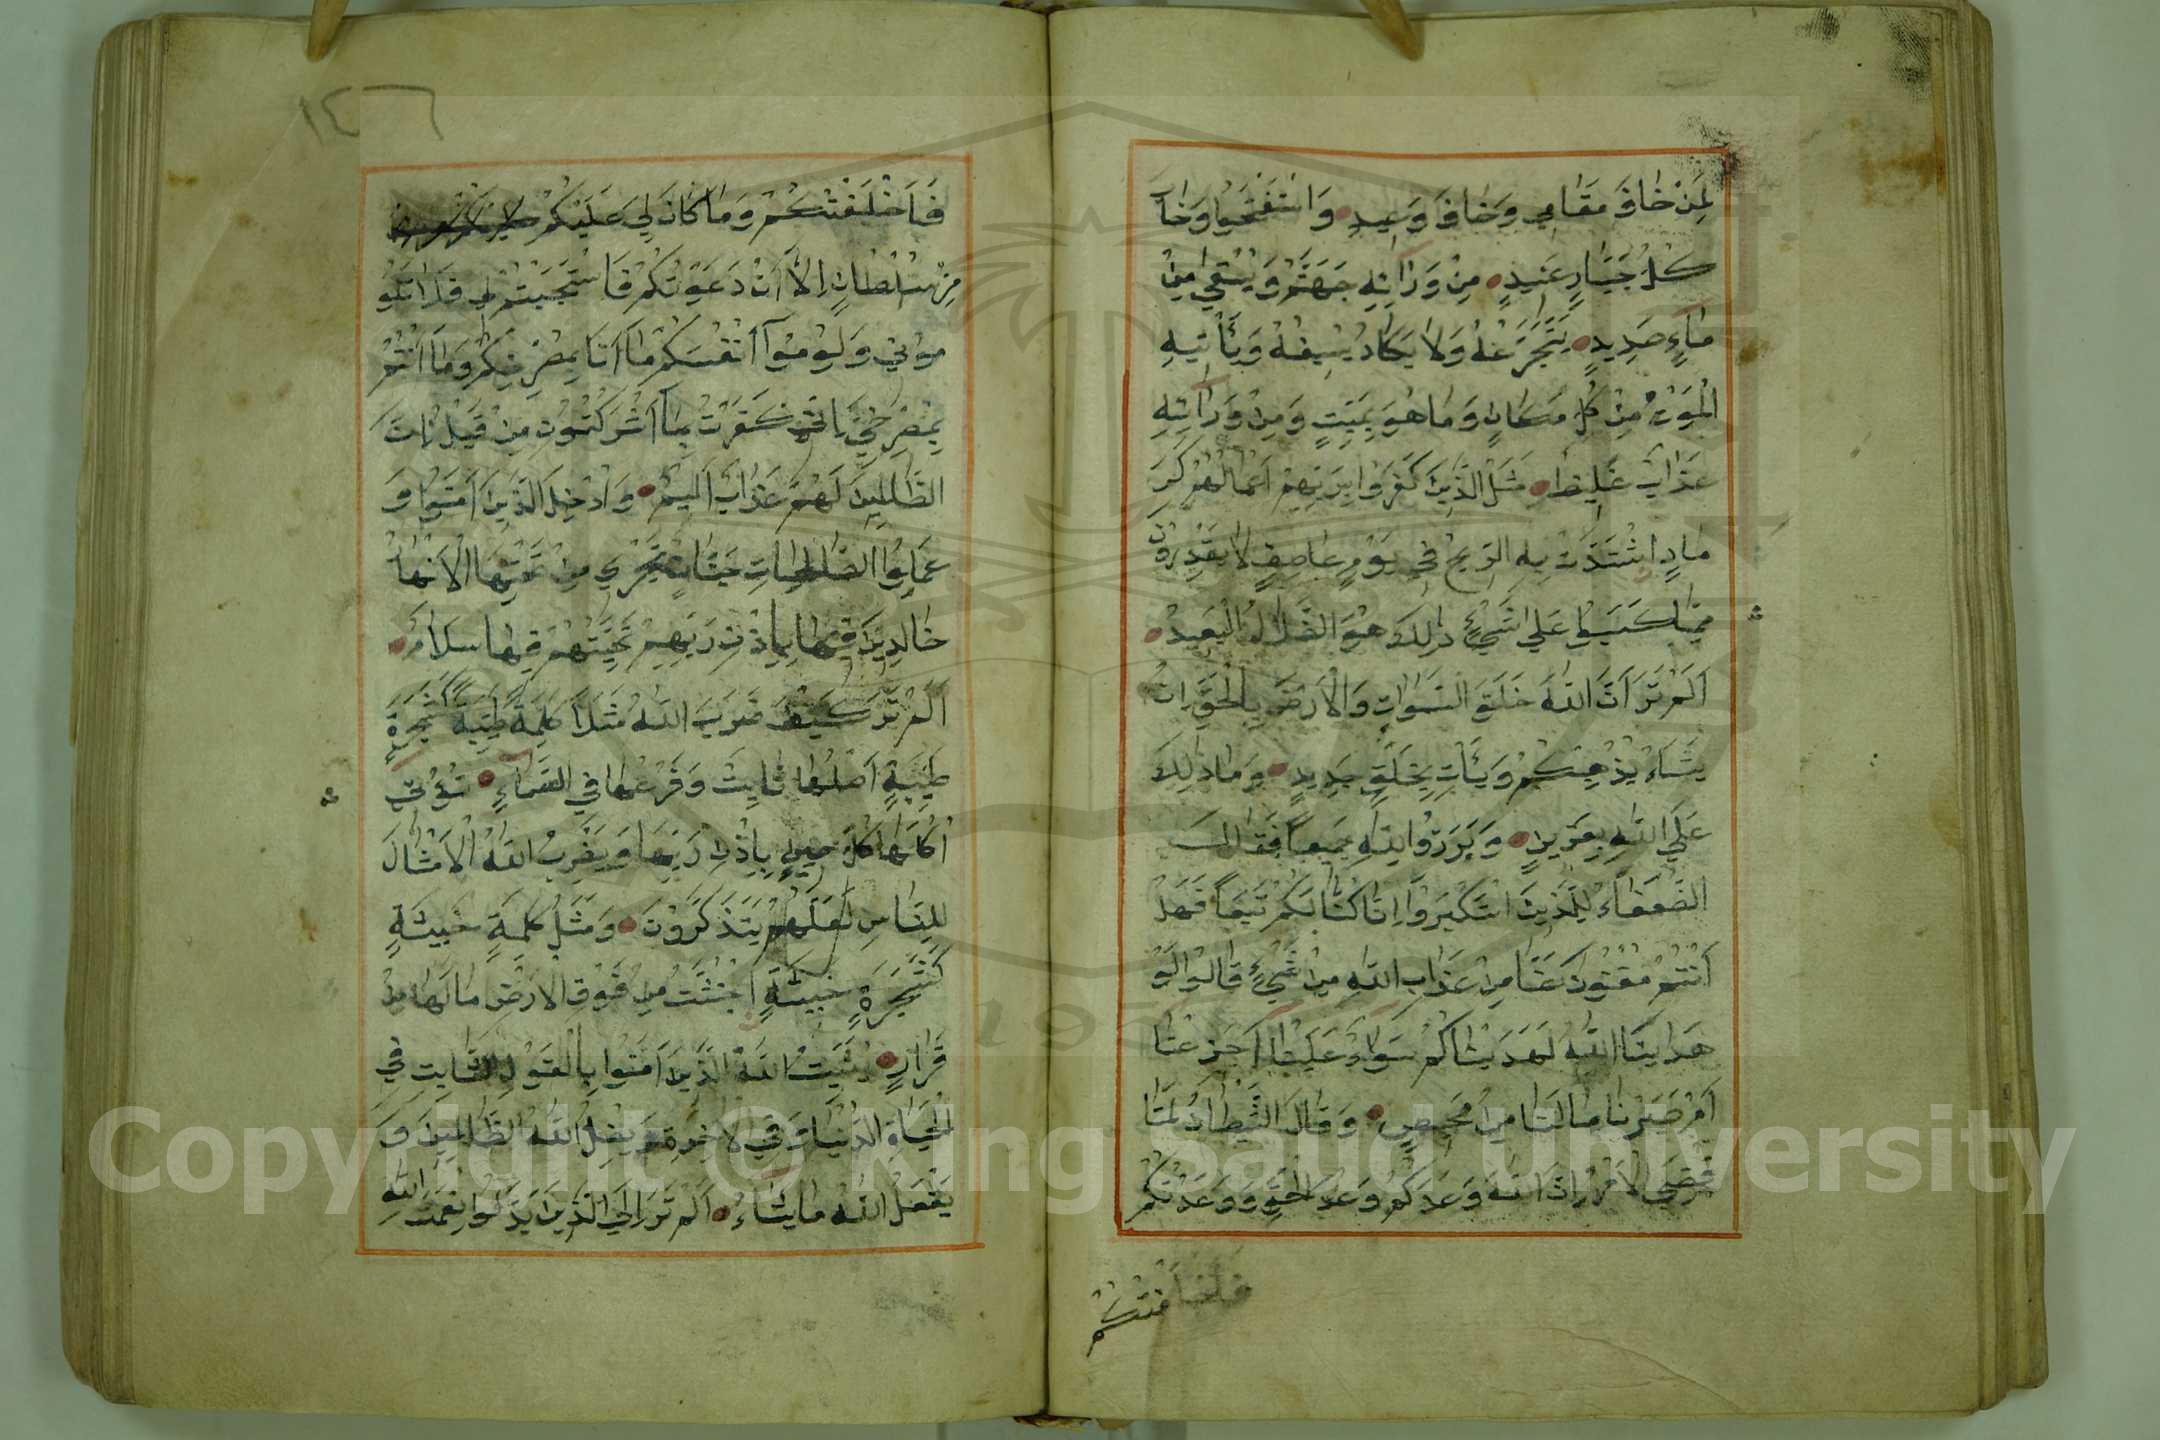 لِمَنْ خٰافَ مَقٰامِي وَخٰافَ وَعِيدِ وَاسْتَفْتَحُوا وَخٰابَ
كُلُّ جَبَّارٍ عَنِيدٍ مِنْ وَرٰائِهِ جَهَنَّمُ وَيُسْقٰى مِنْ
مٰاءٍ صَدِيدٍ يَتَجَرَّعُهُ وَلٰا يَكٰادُ يُسِيغُهُ وَيَأْتِيهِ
الْمَوْتُ مِنْ كُلِّ مَكٰانٍ وَمٰا هُوَ بِمَيِّتٍ وَمِنْ وَرٰائِهِ
عَذٰابٌ غَلِيظٌ مَثَلُ الَّذِينَ كَفَرُوا بِرَبِّهِمْ اَعْمٰالُهُمْ كَرَ
مٰادٍ اشْتَدَّتْ بِهِ الرِّيحُ فِي يَوْمٍ عٰاصِفٍ لٰا يَقْدِرُونَ
مِمَّا كَسَبُوا عَلٰى شَيْءٍ ذٰلِكَ هُوَ الضَّلٰالُ الْبَعِيدُ
اَلَمْ تَرَ اَنَّ اللّٰهَ خَلَقَ السَّمٰوٰاتِ وَالْاَرْضَ بِالْحَقِّ اِنْ
يَشَاءْ يُذْهِبْكُمْ وَيَأْتِ بِخَلْقٍ جَدِيدٍ وَمٰا ذٰلِكَ
عَلَى اللّٰهِ بِعَزِيزٍ وَبَرَزُوا لِلّٰهِ جَمِيعاً فَقٰالَ
الضُّعَفٰاءُ لِلَّذِينَ اسْتَكْبَرُوا اِنَّا كُنَّا لَكُمْ تَبَعاً فَهَلْ
اَنْتُمْ مُغْنُونَ عَنَّا مِنْ عَذٰابِ اللّٰهِ مِنْ شَيْءٍ قٰالُوا لَوْ
هَدٰينَا اللّٰهُ لَهَدَيْنٰاكُمْ سَوٰاءٌ عَلَيْنٰا اَجَزِعْنٰا
اَمْ صَبَرْنٰا مٰا لَنٰا مِنْ مَحِيصٍ وَقٰالَ الشَّيْطٰانُ لَمَّا
قُضِيَ الْاَمْرُ اِنَّ اللّٰهَ وَعَدَكُمْ وَعْدَ الْحَقِّ وَوَعَدْتُكُمْ
فاخلفتكم
١٤٦
فَاَخْلَفْتُكُمْ وَمٰا كٰانَ لِيَ عَلَيْكُمْ
مِنْ سُلْطٰانٍ اِلّٰا اَنْ دَعَوْتُكُمْ فَاسْتَجَبْتُمْ لِي فَلٰا تَلُو
مُونِي وَلُومُوا اَنْفُسَكُمْ مٰا اَنَا بِمُصْرِخِكُمْ وَمٰا اَنْتُمْ
بِمُصْرِخِيَّ اِنِّي كَفَرْتُ بِمٰا اَشْرَكْتُمُونِ مِنْ قَبْلُ اِنَّ
الظّٰالِمِينَ لَهُمْ عَذٰابٌ اَلِيمٌ وَاُدْخِلَ الَّذِينَ اٰمَنُوا وَ
عَمِلُوا الصّٰالِحٰاتِ جَنّٰاتٍ تَجْرِي مِنْ تَحْتِهَا الْاَنْهٰارُ
خٰالِدِينَ فِيهٰا بِاِذْنِ رَبِّهِمْ تَحِيَّتُهُمْ فِيهٰا سَلٰامٌ
اَلَمْ تَرَ كَيْفَ ضَرَبَ اللّٰهُ مَثَلًا كَلِمَةً طَيِّبَةً كَشَجَرَةٍ
طَيِّبَةٍ اَصْلُهٰا ثٰابِتٌ وَفَرْعُهٰا فِي السَّمٰاءِ تُؤْتِي
اُكُلَهٰا كُلَّ حِينٍ بِاِذْنِ رَبِّهٰا وَيَضْرِبُ اللّٰهُ الْاَمْثٰالَ
لِلنّٰاسِ لَعَلَّهُمْ يَتَذَكَّرُونَ وَمَثَلُ كَلِمَةٍ خَبِيثَةٍ
كَشَجَرَةٍ خَبِيثَةٍ اجْتُثَّتْ مِنْ فَوْقِ الْاَرْضِ مٰا لَهٰا مِنْ
قَرٰارٍ يُثَبِّتُ اللّٰهُ الَّذِينَ اٰمَنُوا بِالْقَوْلِ الثّٰابِتِ فِي
الْحَيٰاةِ الدُّنْيٰا وَفِي الْاٰخِرَةِ وَيُضِلُّ اللّٰهُ الظّٰالِمِينَ وَ
يَفْعَلُ اللّٰهُ مٰا يَشٰاءُ اَلَمْ تَرَ اِلَى الَّذِينَ بَدَّلُوا نِعْمَتَ اللّٰهِ
Copyright © King Saud University